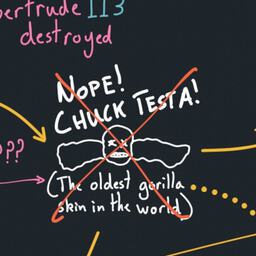 ertrude 113
destroyed
NOPE!
CHUCK TESTA!
??
(The oldest gorilla
skin in the world)